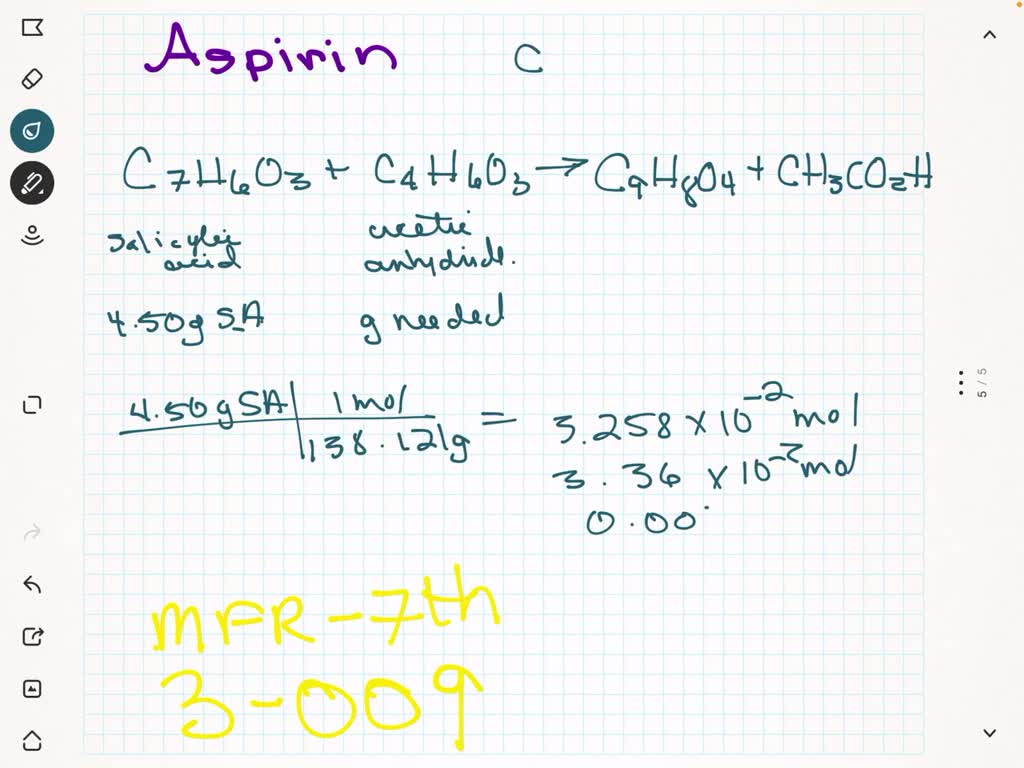 Aspirin C
C7H6O3 + C4H6O3 → C9H8O4 + CH3CO2H
salicylic acetic
acid anhydride.
4.50g SA g needed
4.50g SA 1 mol = 3.258 × 10-2 mol
138.121g
3.36 × 10-2 mol
0.00
MFR-7th
3-009
5/5